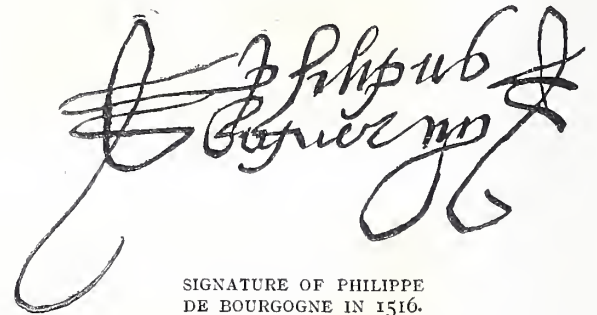 philipus
SIGNATURE OF PHILIPPE
DE BOURGOGNE IN 1516.